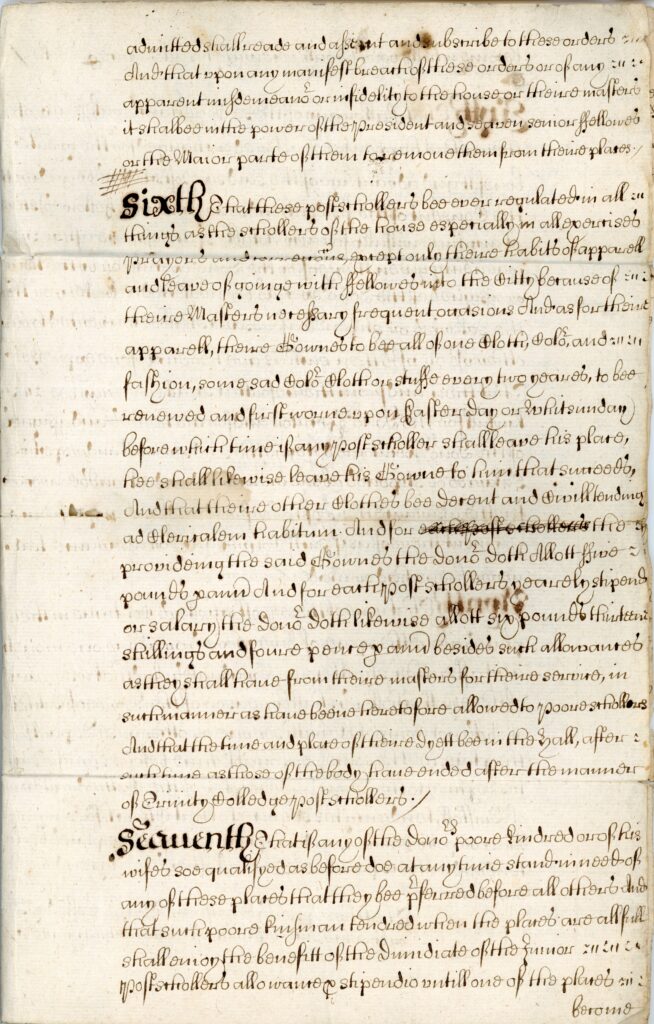 admitted shall reade and assent and subscribe to these orders
And that upon any manifest breach of these orders or of any
apparent misdemeano:r or infidelity to the house or theire masters
it shalbee in the power of the President and Seaven senior ffellowes
or the Maior parte of them to remove them from theire places./
Sixth That these post schollers bee ever regulated in all
things as the schollers of the house especially in all exercises
Prayers and except only theire habits of apparell
and leave of goinge with ffellowes into the Citty because of
theire Masters necessary frequent occasions And as for theire
apparell, theire Gownes to bee all of one Cloth, Colo:r, and
fashion, some sad Colo:r Cloth or stuffe every two yeares, to bee
renewed and first worne upon Easter day or Whitsunday
before which time if any Post scholler shall leave his place,
hee shall likewise leave his Gowne to him that succeeds,
And that theire other Clothes bee decent and Civill tending
ad Clericalem habitum. And for each Post schollers the
providing the said Gownes the dono:r doth Allott ffive
pounds p ann And for each Post schollers yearely stipend
or salary the dono:r doth likewise allott six pounds thirteene
shillings and foure pence p ann besides such allowances
as they shall have from theire masters for theire service, in
such manner as have beene heretofore allowed to Poore schollers
And that the time and place of theire dyett bee in the Hall, after
such time as those of the body have ended after the manner
of Trinity Colledge Post schollers./
Seaventh That if any of the dono:rs poore kindred or of his
wifes soe qualifyed as before doe at any time stand in need of
any of these places that they bee p:rferred before all others And
that such poore kinsman kendred when the places are all full
shall enjoy the benefitt of the dimidiate of the Junior
Post schollers allowance & stipendio untill one of the places
become